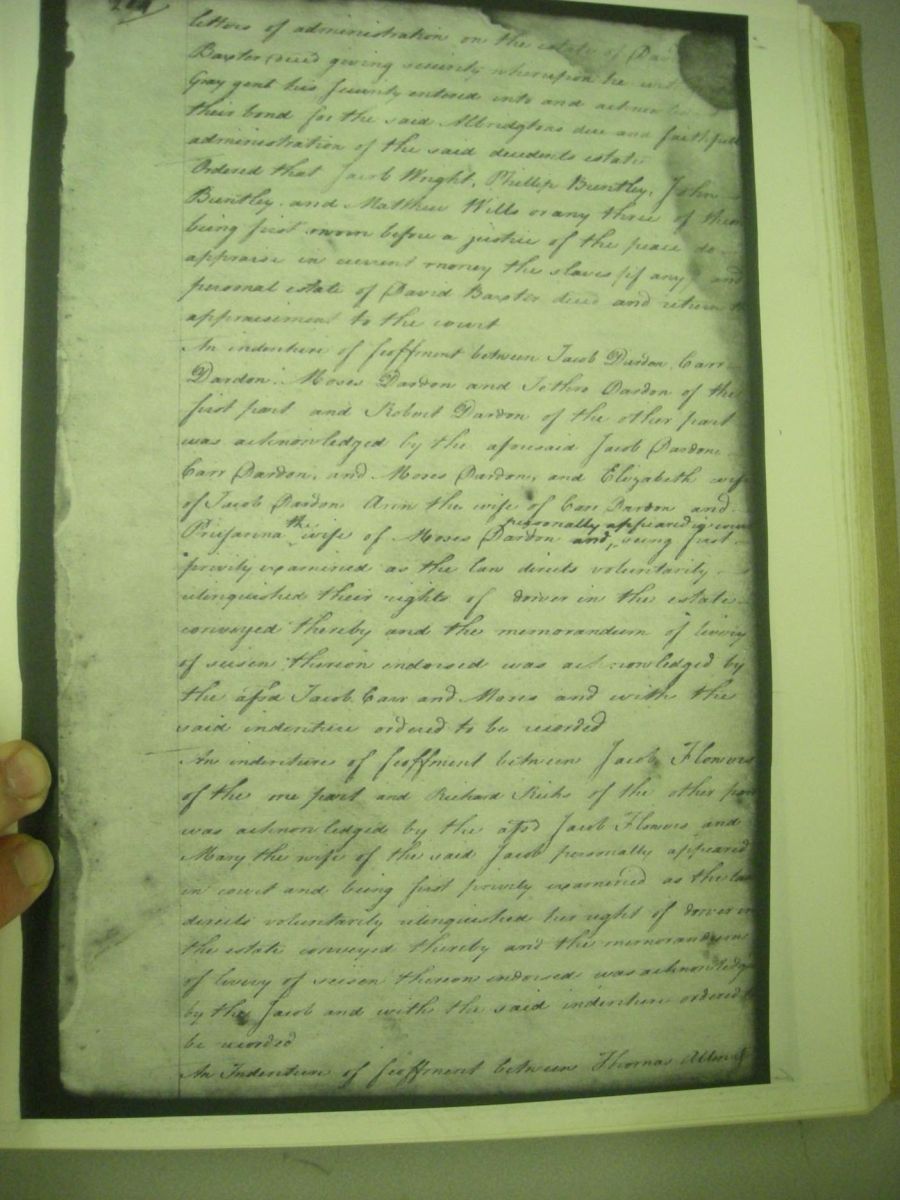 204
letters of administration on the estate of Dav
Baxter decd giving security whereupon he wit
Gray gent his security entered into and acknow
their bond for the said Albridgtons due and faithfull
administration of the said decedents estate
Ordered that Jacob Wright, Phillip Buntley, John
Buntley, and Mathew Wills or any three of them
being first sworn before a justice of the peace do
appraise in current money the slaves (if any) and
personal estate of David Baxter decd and return t
appraisement to the court
An indenture of feoffment between Jacob Dardon, Carr
Dardon, Moses Dardon and Jethro Dardon of the
first part and Robert Dardon of the other part
was acknowledged by the aforesaid Jacob Dardon,
Carr Dardon, and Moses Dardon, and Elizabeth wife
of Jacob Dardon Ann the wife of Carr Dardon and
personally appeared in court
the wife of Moses Dardon and, being first
privily examined as the law directs voluntarily
relinquished their rights of dower in the estate
conveyed thereby and the memorandum of livery
of seisen thereon endorsed was acknowledged by
the afsd Jacob Carr and Moses and with the
said indenture ordered to be recorded
An indenture of feoffment between Jacob Flowers
of the one part and Richard Ricks of the other part
was acknowledged by the afsd Jacob Flowers and
Mary the wife of the said Jacob personally appeared
in court and being first privily examined as the law
directs voluntarily relinquished her right of dower in
the estate conveyed thereby and the memorandum
of livery of seisen thereon endorsed was acknowledge
by the Jacob and with the said indenture ordered t
be recorded
An Indenture of feoffment between Thomas